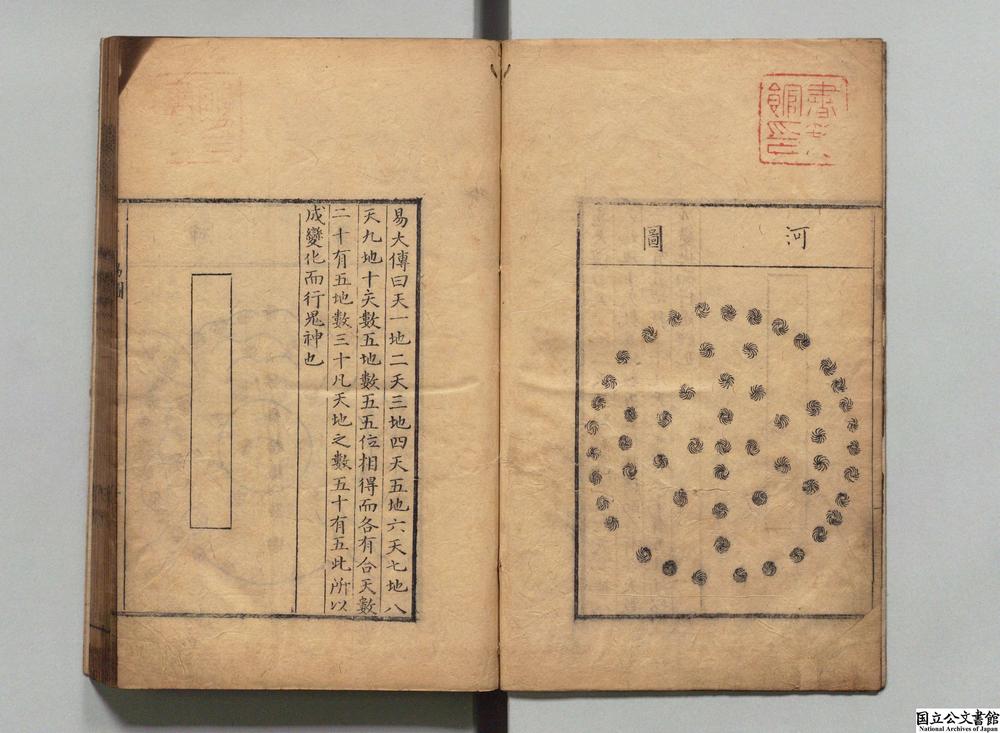 河圖
易大傳曰天一地二天三地四天五地六天七地八
天九地十天數五地數五五位相得而各有合天數
二十有五地數三十凡天地之數五十有五此所以
成變化而行鬼神也
国立公文書館
National Archives of Japan